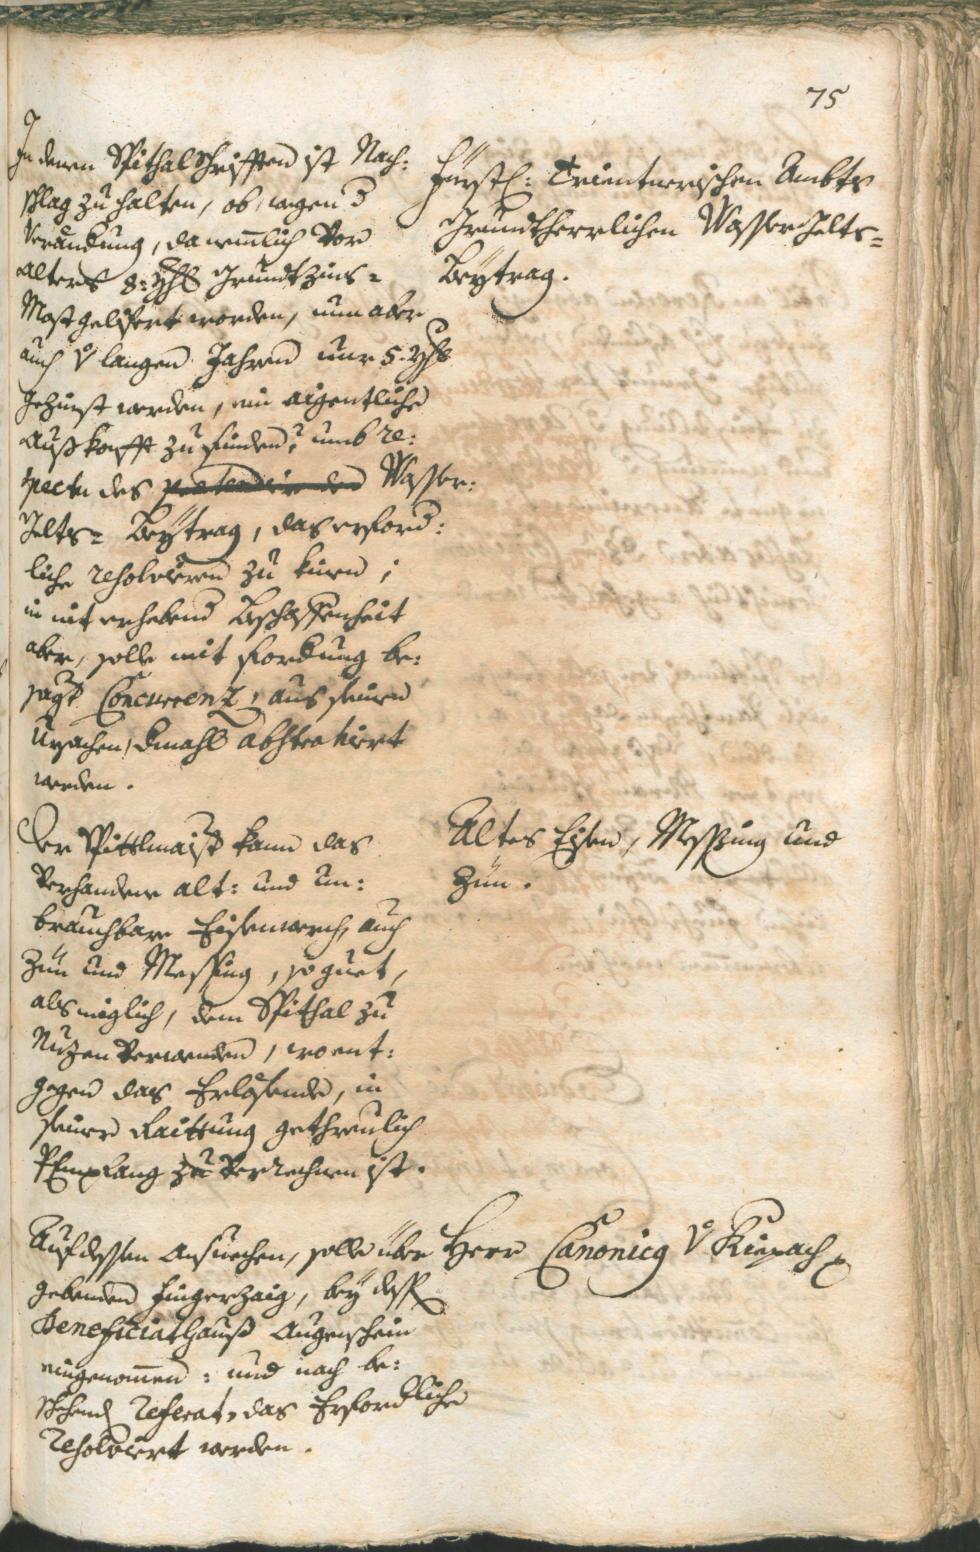 75
In denen Spithalschrifften ist Nach:
schlag zu halten, ob wegen d
Verändung, da nemblich Vor
Alters 8: Yhß Grundtzins=
Most gelifert worden, nun aber
auch v langen Jahren nur 5. Yhß
gezinst werden, ein aigentliche
Außkonfft zu finden? umb re:
spectu des Wasser:
Gelts= Beÿtrag, das erford:
liche resolviren zu könen;
in nit erhebend Beschaffenheit
aber, solle mit fordtung be:
sagt Concurrenz, aus seinen
Ursachen, dmahls abstrahiert
werden.
Fürstl: Trientnerischen Ambts
Grundtherrlichen Wasser Gelts=
Beÿtrag.
Der Spittlmaist kann das
Verhandene alt: und un:
brauchbare Eisenwerch, auch
Zün und Messing, so guet,
als miglich, dem Spithal zu
Nuzen Verwenden, wo ent:
gegen das Erlösende, in
seiner Raittung gethreulich
P Empfang zu Verrechnen ist.
Altes Eisen, Messing und
Zün.
Auf dessen Ansuechen, solle über
gebenden fingerzaig, beÿ dess
Beneficiathauß Augenschein
eingenomen: und nach be:
schehend Referat, das Erfordliche
Resolviert werden.
Herr Canonicq v Kiepach